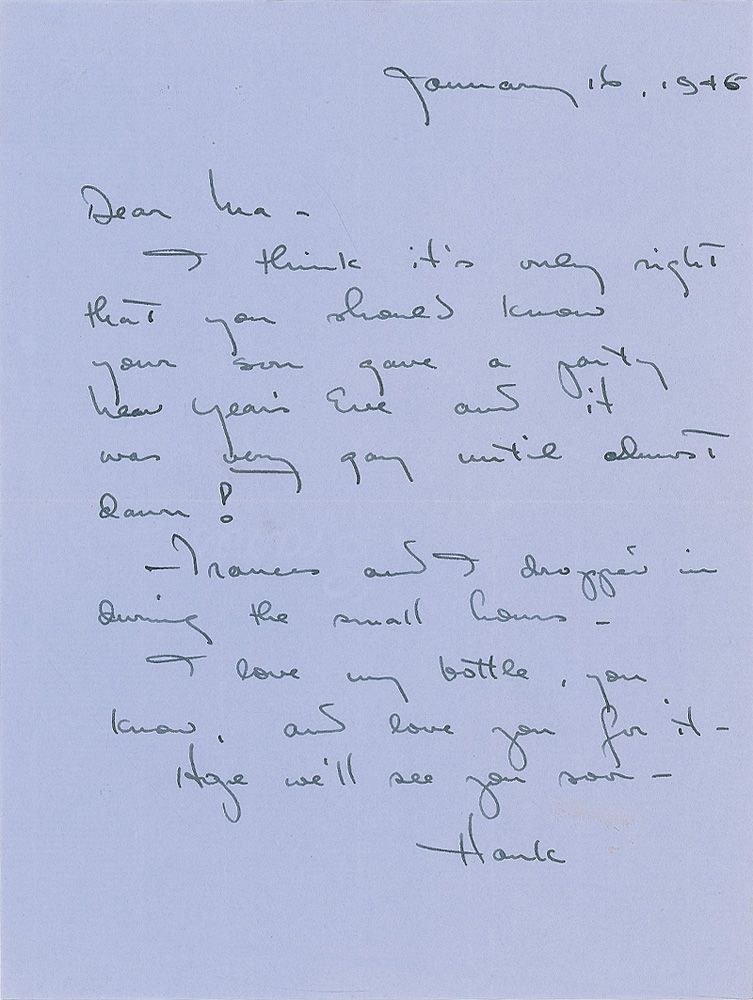 January 16, 1946
Dear Ma -
I think it's only right
that you should know
your son gave a party
New Year's Eve and it
was very gay until almost
dawn!
Frances and I dropped in
during the small hours -
I love my bottle, you
know, and love you for it -
Hope we'll see you soon -
Hank